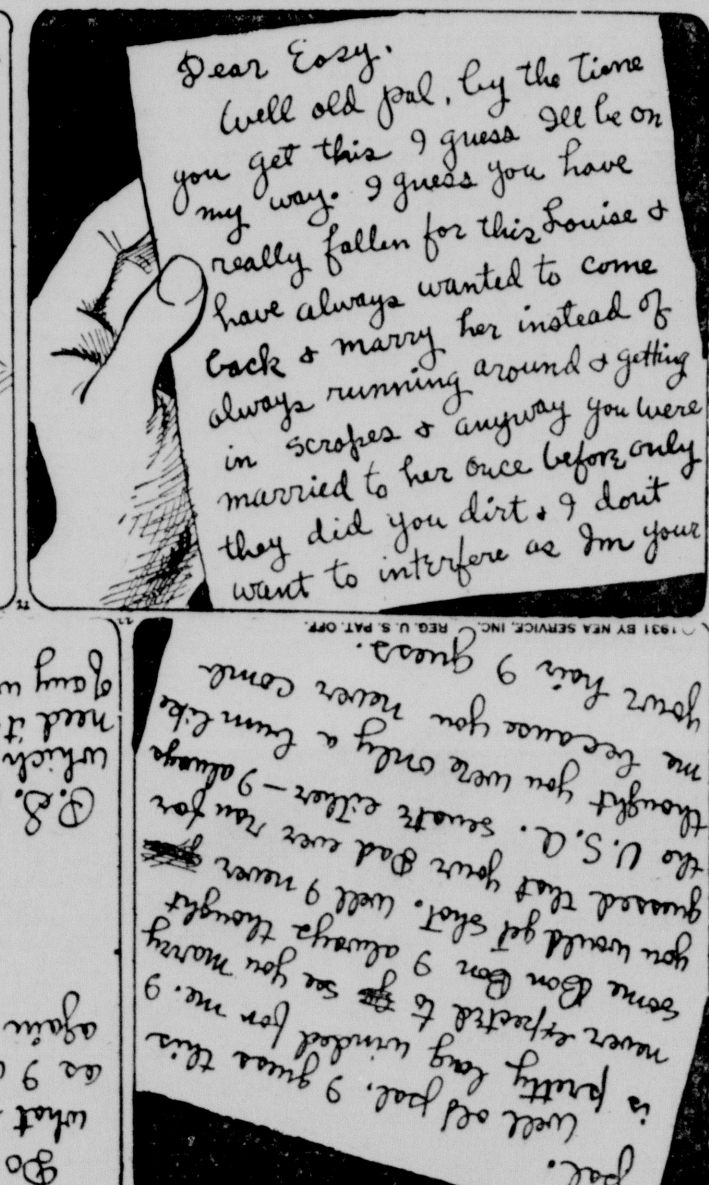 Dear Easy,
Well old pal, by the time
you get this I guess Ill be on
my way. I guess you have
really fallen for this Louise &
have always wanted to come
back & marry her instead of
always running around & getting
in scrapes & anyway you were
married to her once before only
they did you dirt & I don't
want to interfere as Im your
pal.
Well old pal, I guess this
is pretty long winded for me. I
never expected to see you marry
some Bon Bon I always thought
you would get shot. Well I never
guessed that your Dad ever ran for
the U.S.A. Senate either — I always
thought you were only a bum like
me because you never comb
your hair I guess.
© 1931 BY NEA SERVICE, INC. REG. U. S. PAT. OFF.
Do
what
as I
again
P.S.
which
need it
of any